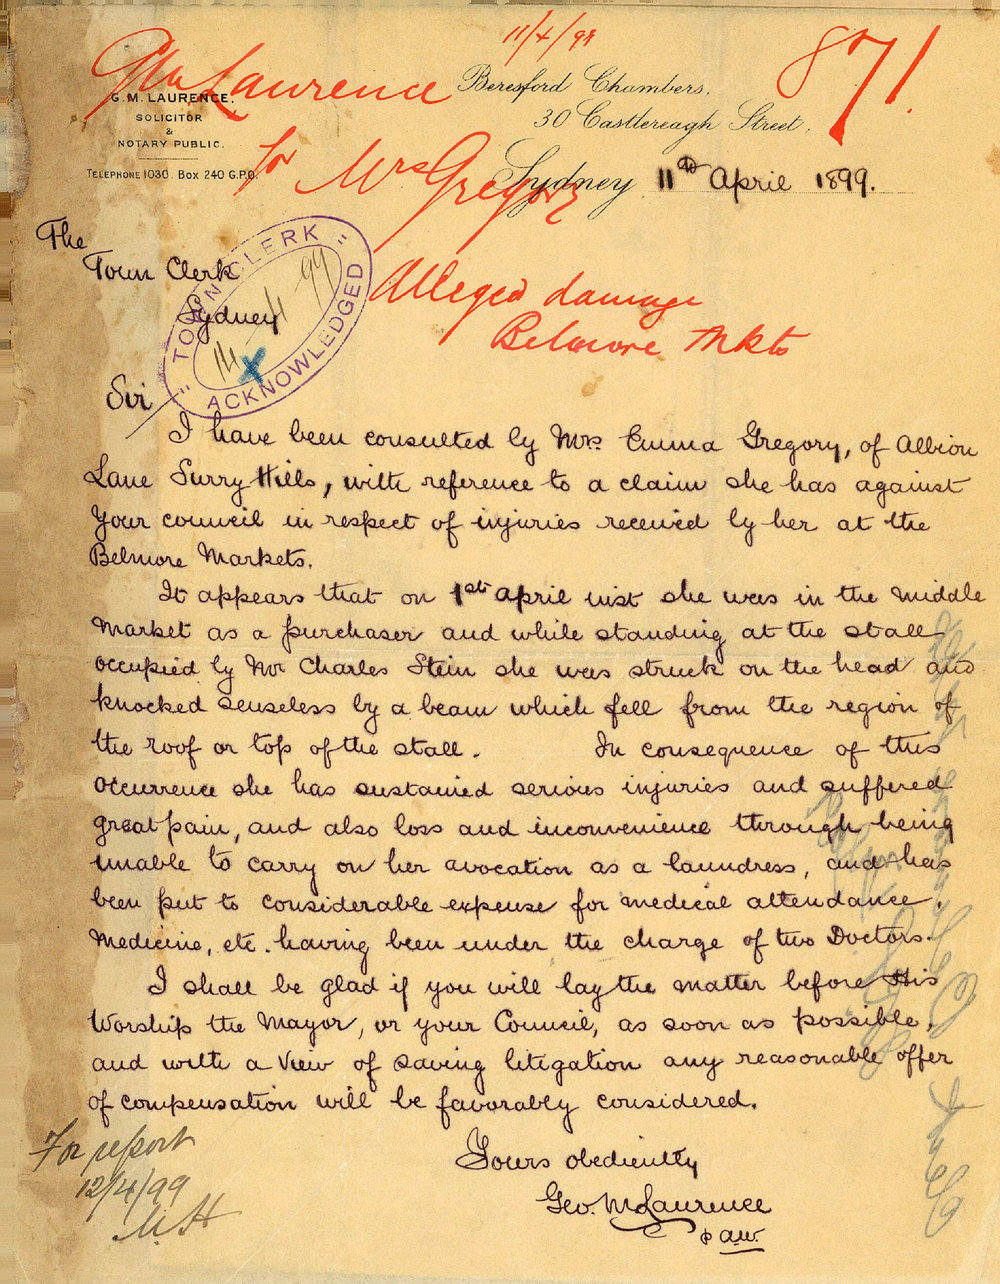 11/4/99
871.
Geo Laurence
for Mrs Gregory
Alleged damage
Belmore Mkts
G. M. LAURENCE.
SOLICITOR
&
NOTARY PUBLIC.
TELEPHONE 1030. BOX 240 G.P.O.
Beresford Chambers,
30 Castlereagh Street,
Sydney 11th April 1899.
The
Town Clerk
Sydney
"TOWN CLERK"
14/4/99
X
ACKNOWLEDGED
Sir
I have been consulted by Mrs. Emma Gregory, of Albion
Lane Surry Hills, with reference to a claim she has against
Your council in respect of injuries received by her at the
Belmore Markets.
It appears that on 1st April inst she was in the middle
Market as a purchaser and while standing at the stall
occupied by Mr Charles Stein she was struck on the head and
knocked senseless by a beam which fell from the region of
the roof or top of the stall. In consequence of this
occurrence she has sustained serious injuries and suffered
great pain, and also loss and inconvenience through being
unable to carry on her avocation as a laundress, and has
been put to considerable expense for medical attendance,
Medicine, etc. having been under the charge of two Doctors.
I shall be glad if you will lay the matter before His
Worship the Mayor, or your Council, as soon as possible,
and with a view of saving litigation any reasonable offer
of compensation will be favorably considered.
Yours obediently
Geo. M. Laurence
p aw.
For report
12/4/99